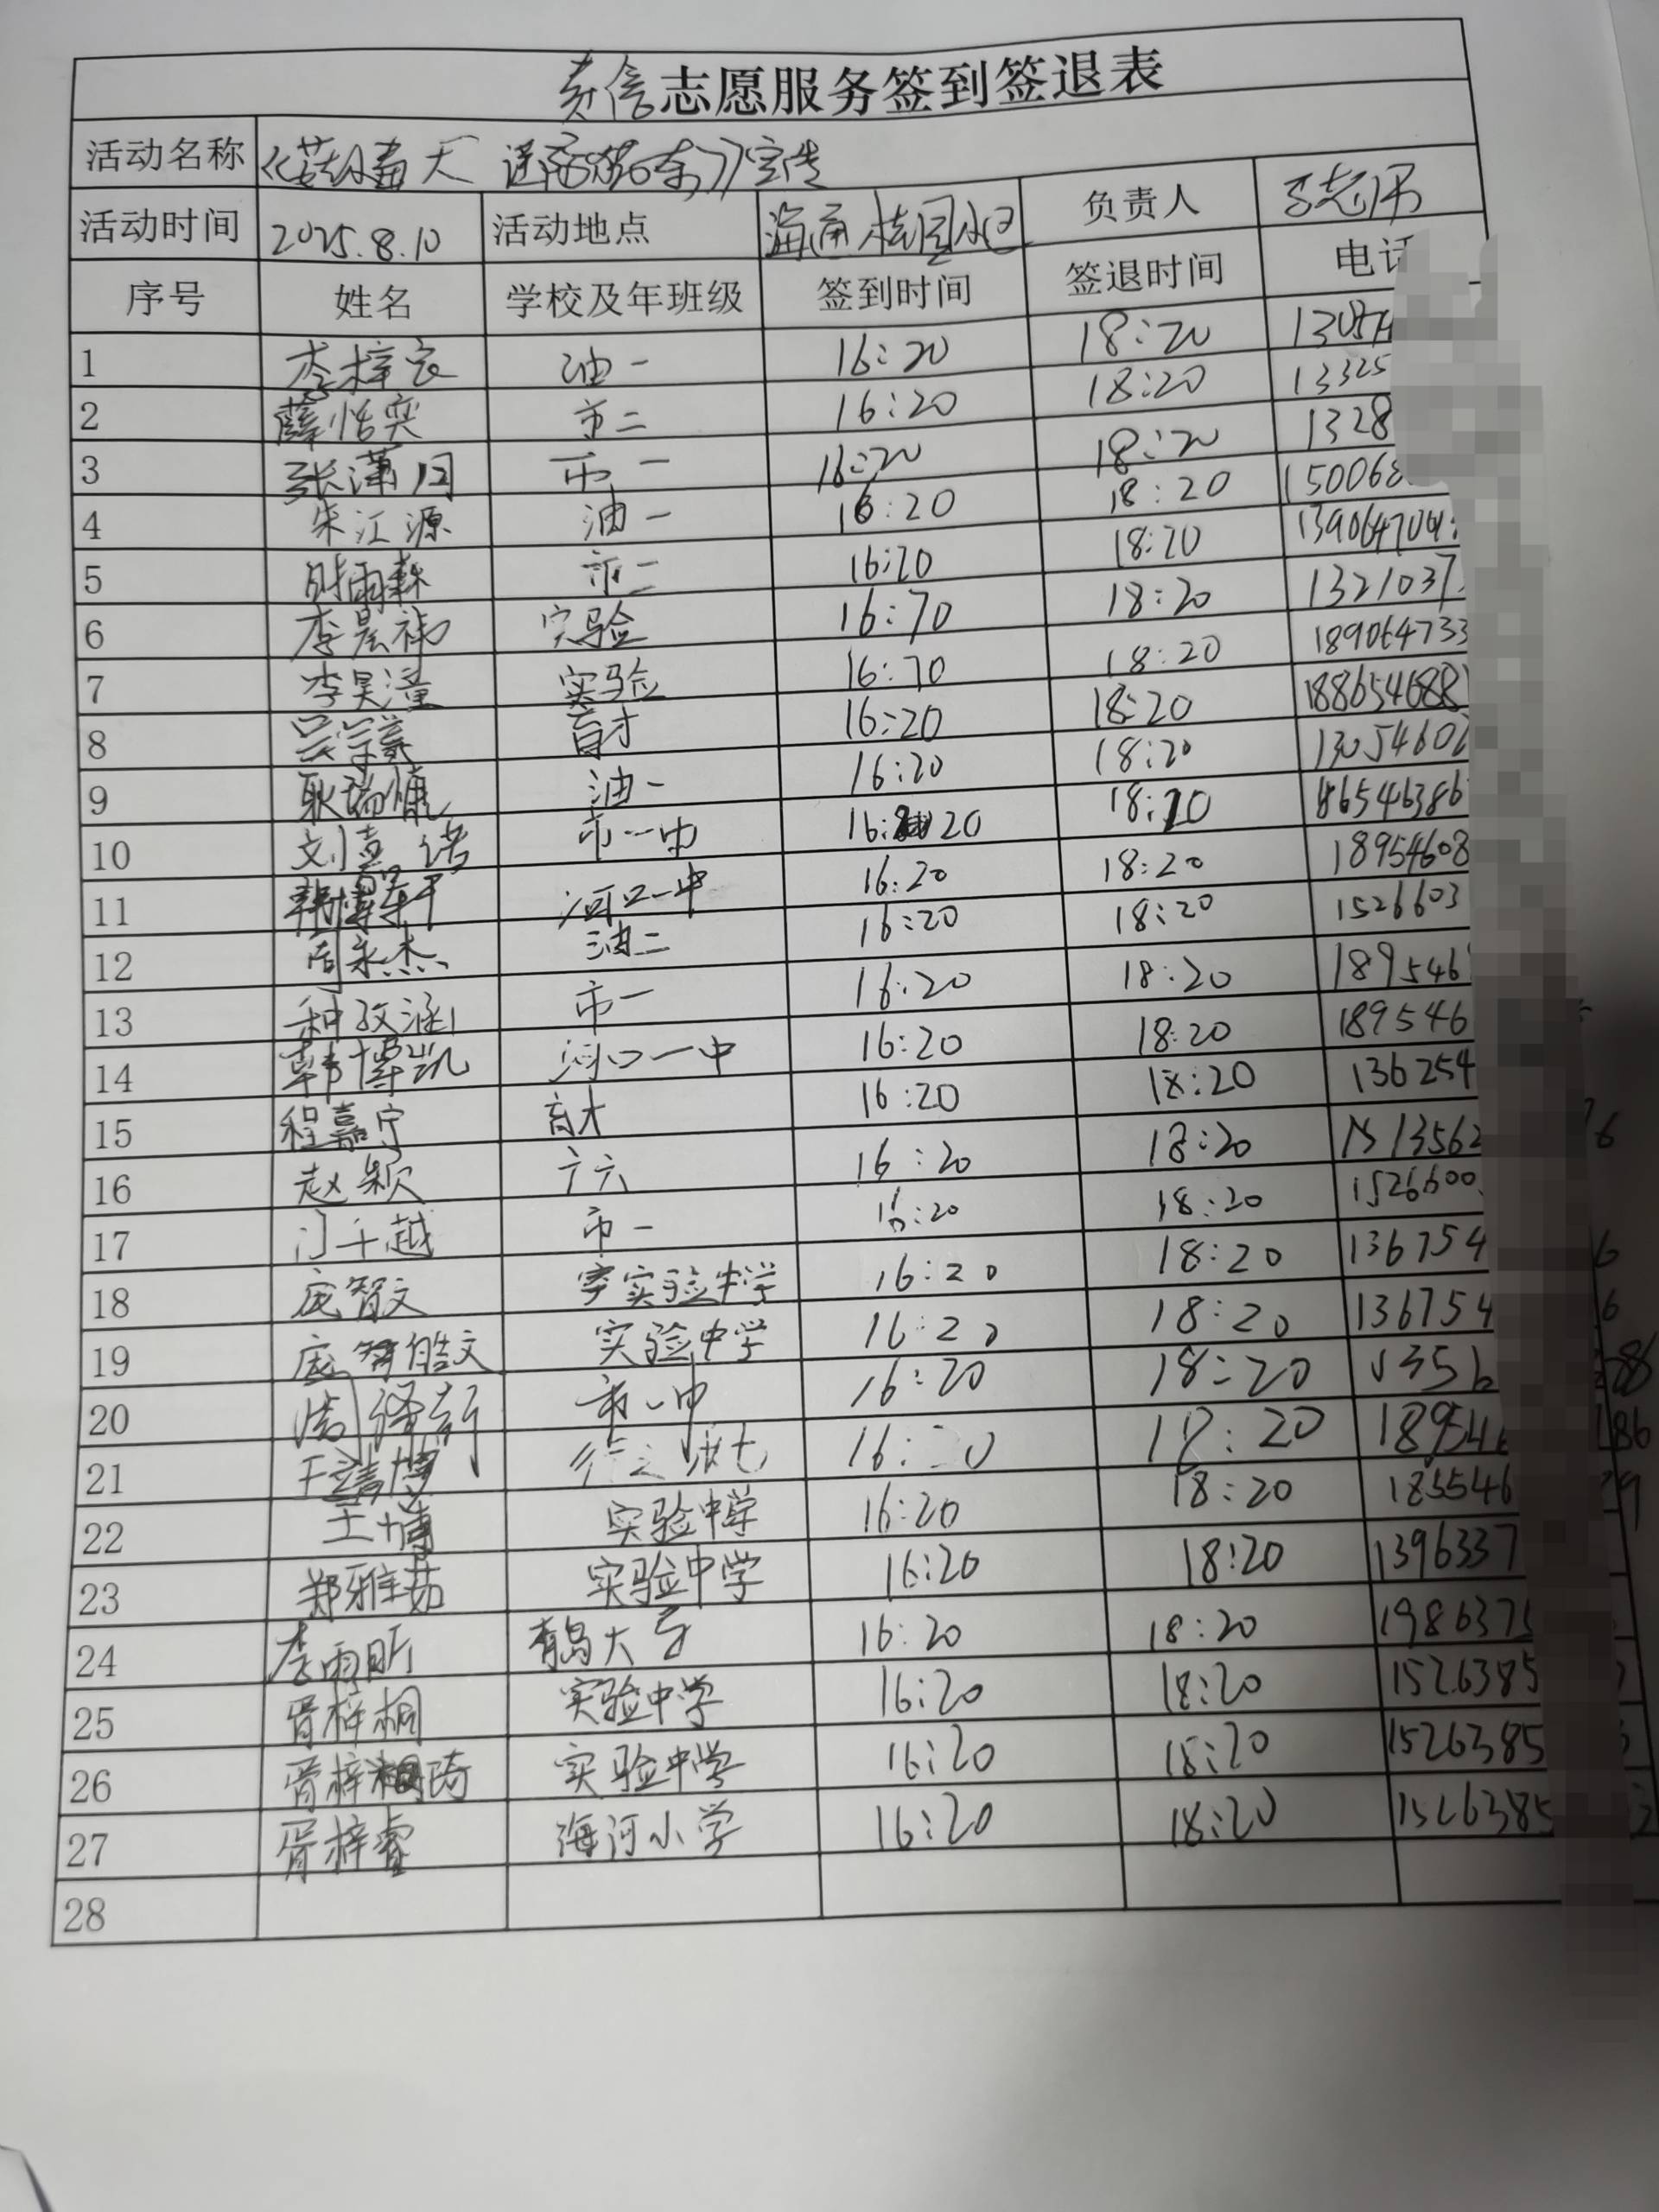 志愿服务签到签退表
活动名称 宣传
活动时间 2025.8.10 活动地点 海通桂园小区 负责人 王志伟
序号 姓名 学校及年班级 签到时间 签退时间 电话
1 李梓宸 油一 16:20 18:20
2 薛怡奕 市二 16:20 18:20 13325
3 张潇 市一 16:20 18:20 1328
4 朱江源 油一 16:20 18:20 150068
5 时雨霖 市二 16:20 18:20 139064704
6 李晨祎 实验 16:70 18:20 1321037
7 李昊潼 实验 16:70 18:20 189064733
8 育才 16:20 18:20 188654688
9 耿瑞 油一 16:20 18:20 13054602
10 刘嘉诺 市一中 16:20 18:20 86546386
11 韩博轩 河口一中 16:20 18:20 18954608
12 周永杰 油二 16:20 18:20 1526603
13 种孜涵 市一 16:20 18:20 189546
14 韩博凯 河口一中 16:20 18:20 189546
15 程嘉宁 育才 16:20 18:20 136254
16 赵颖 六 16:20 18:20 13562 6
17 门千越 市一 16:20 18:20 1526600
18 庞智文 实验中学 16:20 18:20 136754 6
19 庞皓文 实验中学 16:20 18:20 136754 6
20 市一中 16:20 18:20 356 88
21 王靖博 16:20 18:20 189546 186
22 王博 实验中学 16:20 18:20 185546 9
23 郑雅茹 实验中学 16:20 18:20 1396337
24 李雨昕 青岛大学 16:20 18:20 1986375
25 胥梓桐 实验中学 16:20 18:20 1526385
26 胥梓琦 实验中学 16:20 18:20 1526385
27 胥梓睿 海河小学 16:20 18:20 1526385
28